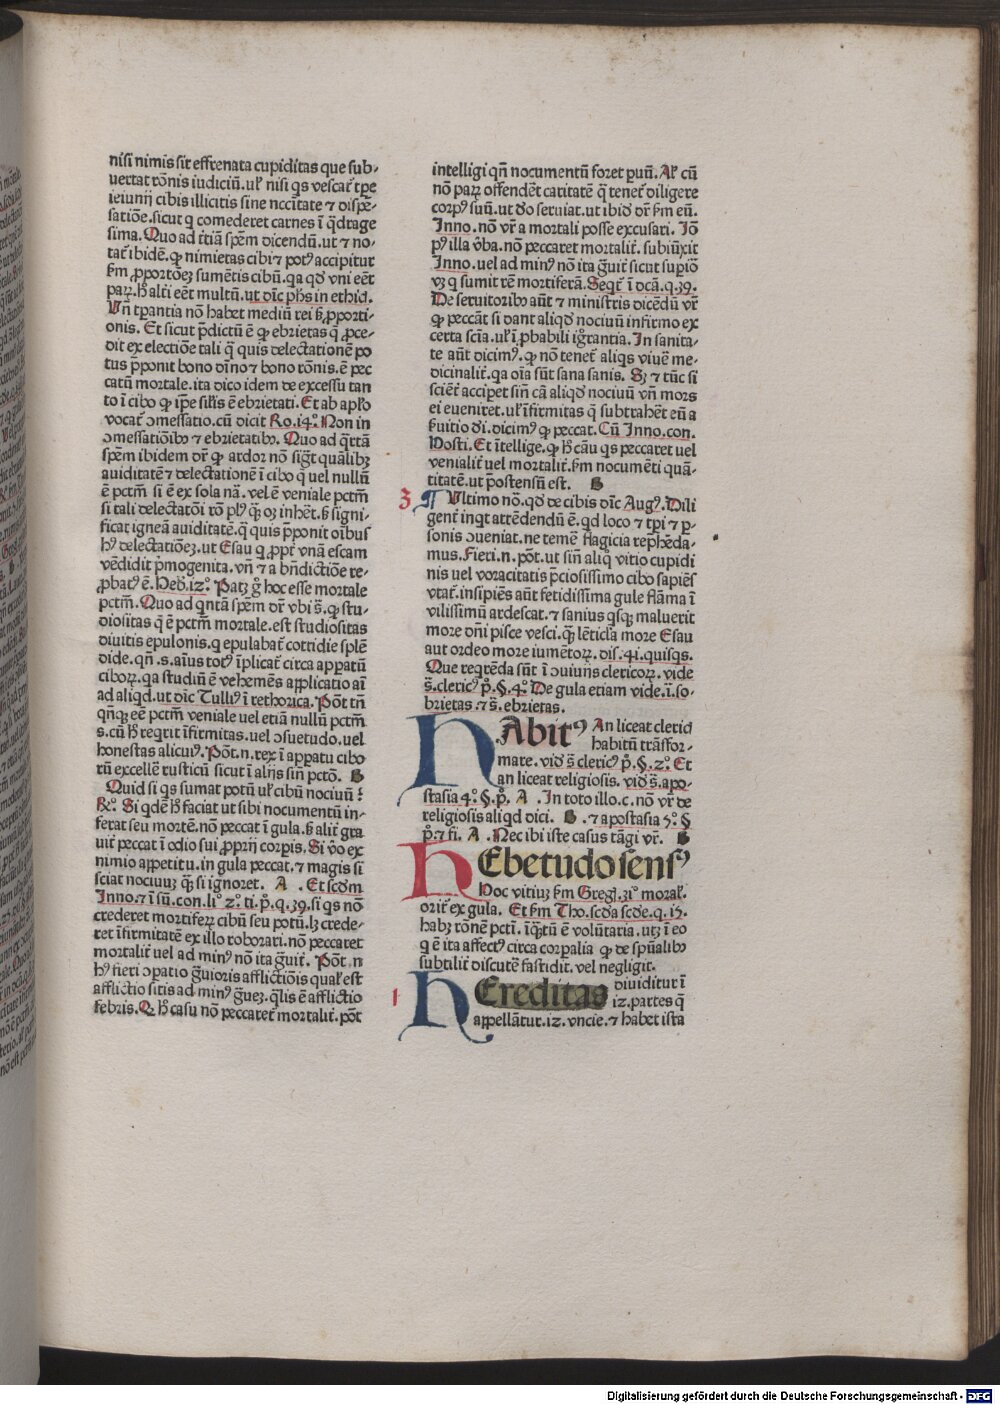 nisi nimis sit effrenata cupiditas que sub-
vertat rōnis iudiciū. ul̕ nisi qs vescat̕ tp̄e
ieiunij cibis illicitis sine nccitate ⁊ dispē-
satiōe. sicut q comederet carnes ī q̄drage
sima. Quo ad t̄tiā spēm dicendū. ut ⁊ no-
tat̕ ibidē. qꝙ nimietas cibi ⁊ potꝰ accipitur
km̄ ꝓportōeꝫ sumētis cibū. qa qd̕ vni eēt
paꝝ. h̕ alti eēt multū. ut dīc ph̄s in ethic̕.
Vn̄ tꝑantia nō habet mediū rei ß ꝓporti-
onis. Et sicut p̄dictū ē ꝙ ebrietas q̄ ꝓce-
dit ex electiōe tali q̄ quis delectationē po
tus p̄ponit bono dīno ⁊ bono rōnis. ē pec
catū mortale. ita dico idem de excessu tan
to ī cibo ꝙ ip̄e sil̕is ē ebrietati. Et ab apl̕o
vocat̕ ɔmessatio. cū dicit Ro. i4̕. Non in
ɔmessatiōibꝰ ⁊ ebrietatibꝰ. Quo ad q̄rtā
spēm ibidem dr̄ ꝙ ardor nō sig̕t quālibꝫ
auiditatē ⁊ delectationē ī cibo q̄ uel nullū
ē pctm̄ si ē ex sola nā. vel ē veniale pctm̄
si tali delectatōi rō plꝰ q̄ oꝫ inhēt. ß signi-
ficat igneā auiditatē. q̄ quis p̄ponit oībus
hꝰ delectatiōeꝫ. ut Esau q ꝓpt̕ vnā escam
vēdidit p̄mogenita. vn̄ ⁊ a bn̄dictiōe re-
ꝓbatꝰ ē. Heb̕. i2̕. Patꝫ g̕ hoc esse mortale
pctm̄. Quo ad qntā spēm dr̄ vbi s̄. ꝙ stu-
diositas q̄ ē pctm̄ mortale. est studiositas
diuitis epulonis. q epulabat̕ cottidie splē
dide. qn̄. s. aīus totꝰ īplicat̕ circa apparatū
ciboꝝ. qa studiū ē vehemēs applicatio aī
ad aliqd. ut dīc Tulliꝰ ī rethorica. Pōt tn̄
qn̄qꝫ eē pctm̄ veniale uel etiā nullū pctm̄
s. cū h̕ reqrit īfirmitas. uel ɔsuetudo. uel
honestas alicuiꝰ. Pōt. n. rex ī apparatu cibo
rū excellē rusticū sicut ī alijs sin̄ pctō. B
Quid si qs sumat potū ul̕ cibū nociuū ?
R̕. Si qdē h̕ faciat ut sibi nocumentū in-
ferat seu mortē. nō peccat ī gula. ß alit̕ gra
uit̕ peccat ī odio sui ꝓprij corpis. Si v̕o ex
nimio appetitu. in gula peccat. ⁊ magis si
sciat nociuuꝫ q̄ si ignoret. A . Et scd̕m
Inno. ⁊ ī sū. con. li̕ 2̕. ti. p̕. q. 39. si qs nō
crederet mortiferꝝ cibū seu potū. lꝫ crede-
ret īfirmitatē ex illo roborari. nō peccaret
mortalit̕ uel ad minꝰ nō ita g̕uit̕. Pōt. n
hꝰ fieri ɔpatio g̕uioris afflictiōis qual̕ est
afflictio sitis ad minꝰ g̕ueꝫ. q̄lis ē afflictio
febris. Q̕ h̕ casu nō peccaret mortalit̕. pōt
intelligi qn̄ nocumentū foret ꝑuū. Al̕ cū
nō paꝝ offendēt caritatē q̄ tenet̕ diligere
corpꝰ suū. ut d̕o seruiat. ut ibid̕ dr̄ km̄ eū.
Inno. nō vr̄ a mortali posse excusari. Iō
pꝰ illa v̕ba. nō peccaret mortalit̕. subiūxit
Inno. uel ad minꝰ nō ita g̕uit̕ sicut supiō
vꝫ q sumit rē mortiferā. Seqt̕ ī dcā. q. 39.
De seruitoribꝰ aūt ⁊ ministris dicēdū vr̄
ꝙ peccāt si dant aliqd̕ nociuū infirmo ex
certa scīa. ul̕ ī ꝓbabili ig̕rantia. In sanita-
te aūt dicimꝰ. ꝙ nō tenet̕ aliqs viuē me-
dicinalit̕. qa oīa sūt sana sanis. Sꝫ ⁊ tūc si
sciēt̕ accipet siꝫ cā aliqd̕ nociuū vn̄ mors
ei eueniret. ul̕ īfirmitas q̄ subtrahēt eū a
ßuitio di. dicimꝰ ꝙ peccat. Cū Inno. con.
Hosti. Et ītellige. ꝙ h̕ cāu qs peccaret uel
venialit̕ uel mortalit̕. km̄ nocumēti quā-
titatē. ut p̄ostensū est. B
3 ¶ Vltimo nō. qd̕ de cibis dīc Augꝰ. Dili
gent̕ inqt attēdendū ē. qd loco ⁊ tp̄i ⁊ ꝑ-
sonis ɔueniat. ne temē flagicia rep̄hēda-
mus. Fieri. n. pōt. ut sin̄ aliq̄ vitio cupidi
nis uel voracitatis p̄ciosissimo cibo sapiēs
vtat̕. insipiēs aūt fetidissima gule flāma ī
vilissimū ardescat. ⁊ sanius qsqꝫ maluerit
more dn̄i pisce vesci. q̄ lēticla more Esau
aut ordeo more iumētoꝝ. dis. 4i. quisqs.
Que reqrēda sūt ī ɔuiuijs clericoꝝ. vide
s̄. clericꝰ p̕. §. 4̕. De gula etiam vide. ī. so-
brietas. ⁊ s̄. ebrietas.
HAbitꝰ An liceat clerici
habitū trāsfor-
mare. vid̕ s̄ clericꝰ p̕. §. 2̕. Et
an liceat religiosis. vid̕ s̄. apo-
stasia 4̕. §. p̕. A . In toto illo. c. nō vr̄ de
religiosis aliqd dici. B . ⁊ apostasia 5̕. §
p̕. ⁊ fi. A . Nec ibi iste casus tāgi vr̄. B
HEbetudo sensꝰ
Hoc vitiuꝫ km̄ Greg̕. 3i̕ moral̕.
orit̕ ex gula. Et km̄ Tho. scd̕a scd̕e. q. i5.
habꝫ rōnē pctī. īq̄tū ē volūtaria. utꝫ ī eo
q ē ita affectꝰ circa corꝑalia ꝙ de spūalibꝰ
subtilit̕ discutē fastidit. vel negligit.
1 HEreditas diuiditur ī
i2. partes q̄
appellātur. i2. vncie. ⁊ habet ista
Digitalisierung gefördert durch die Deutsche Forschungsgemeinschaft - DFG